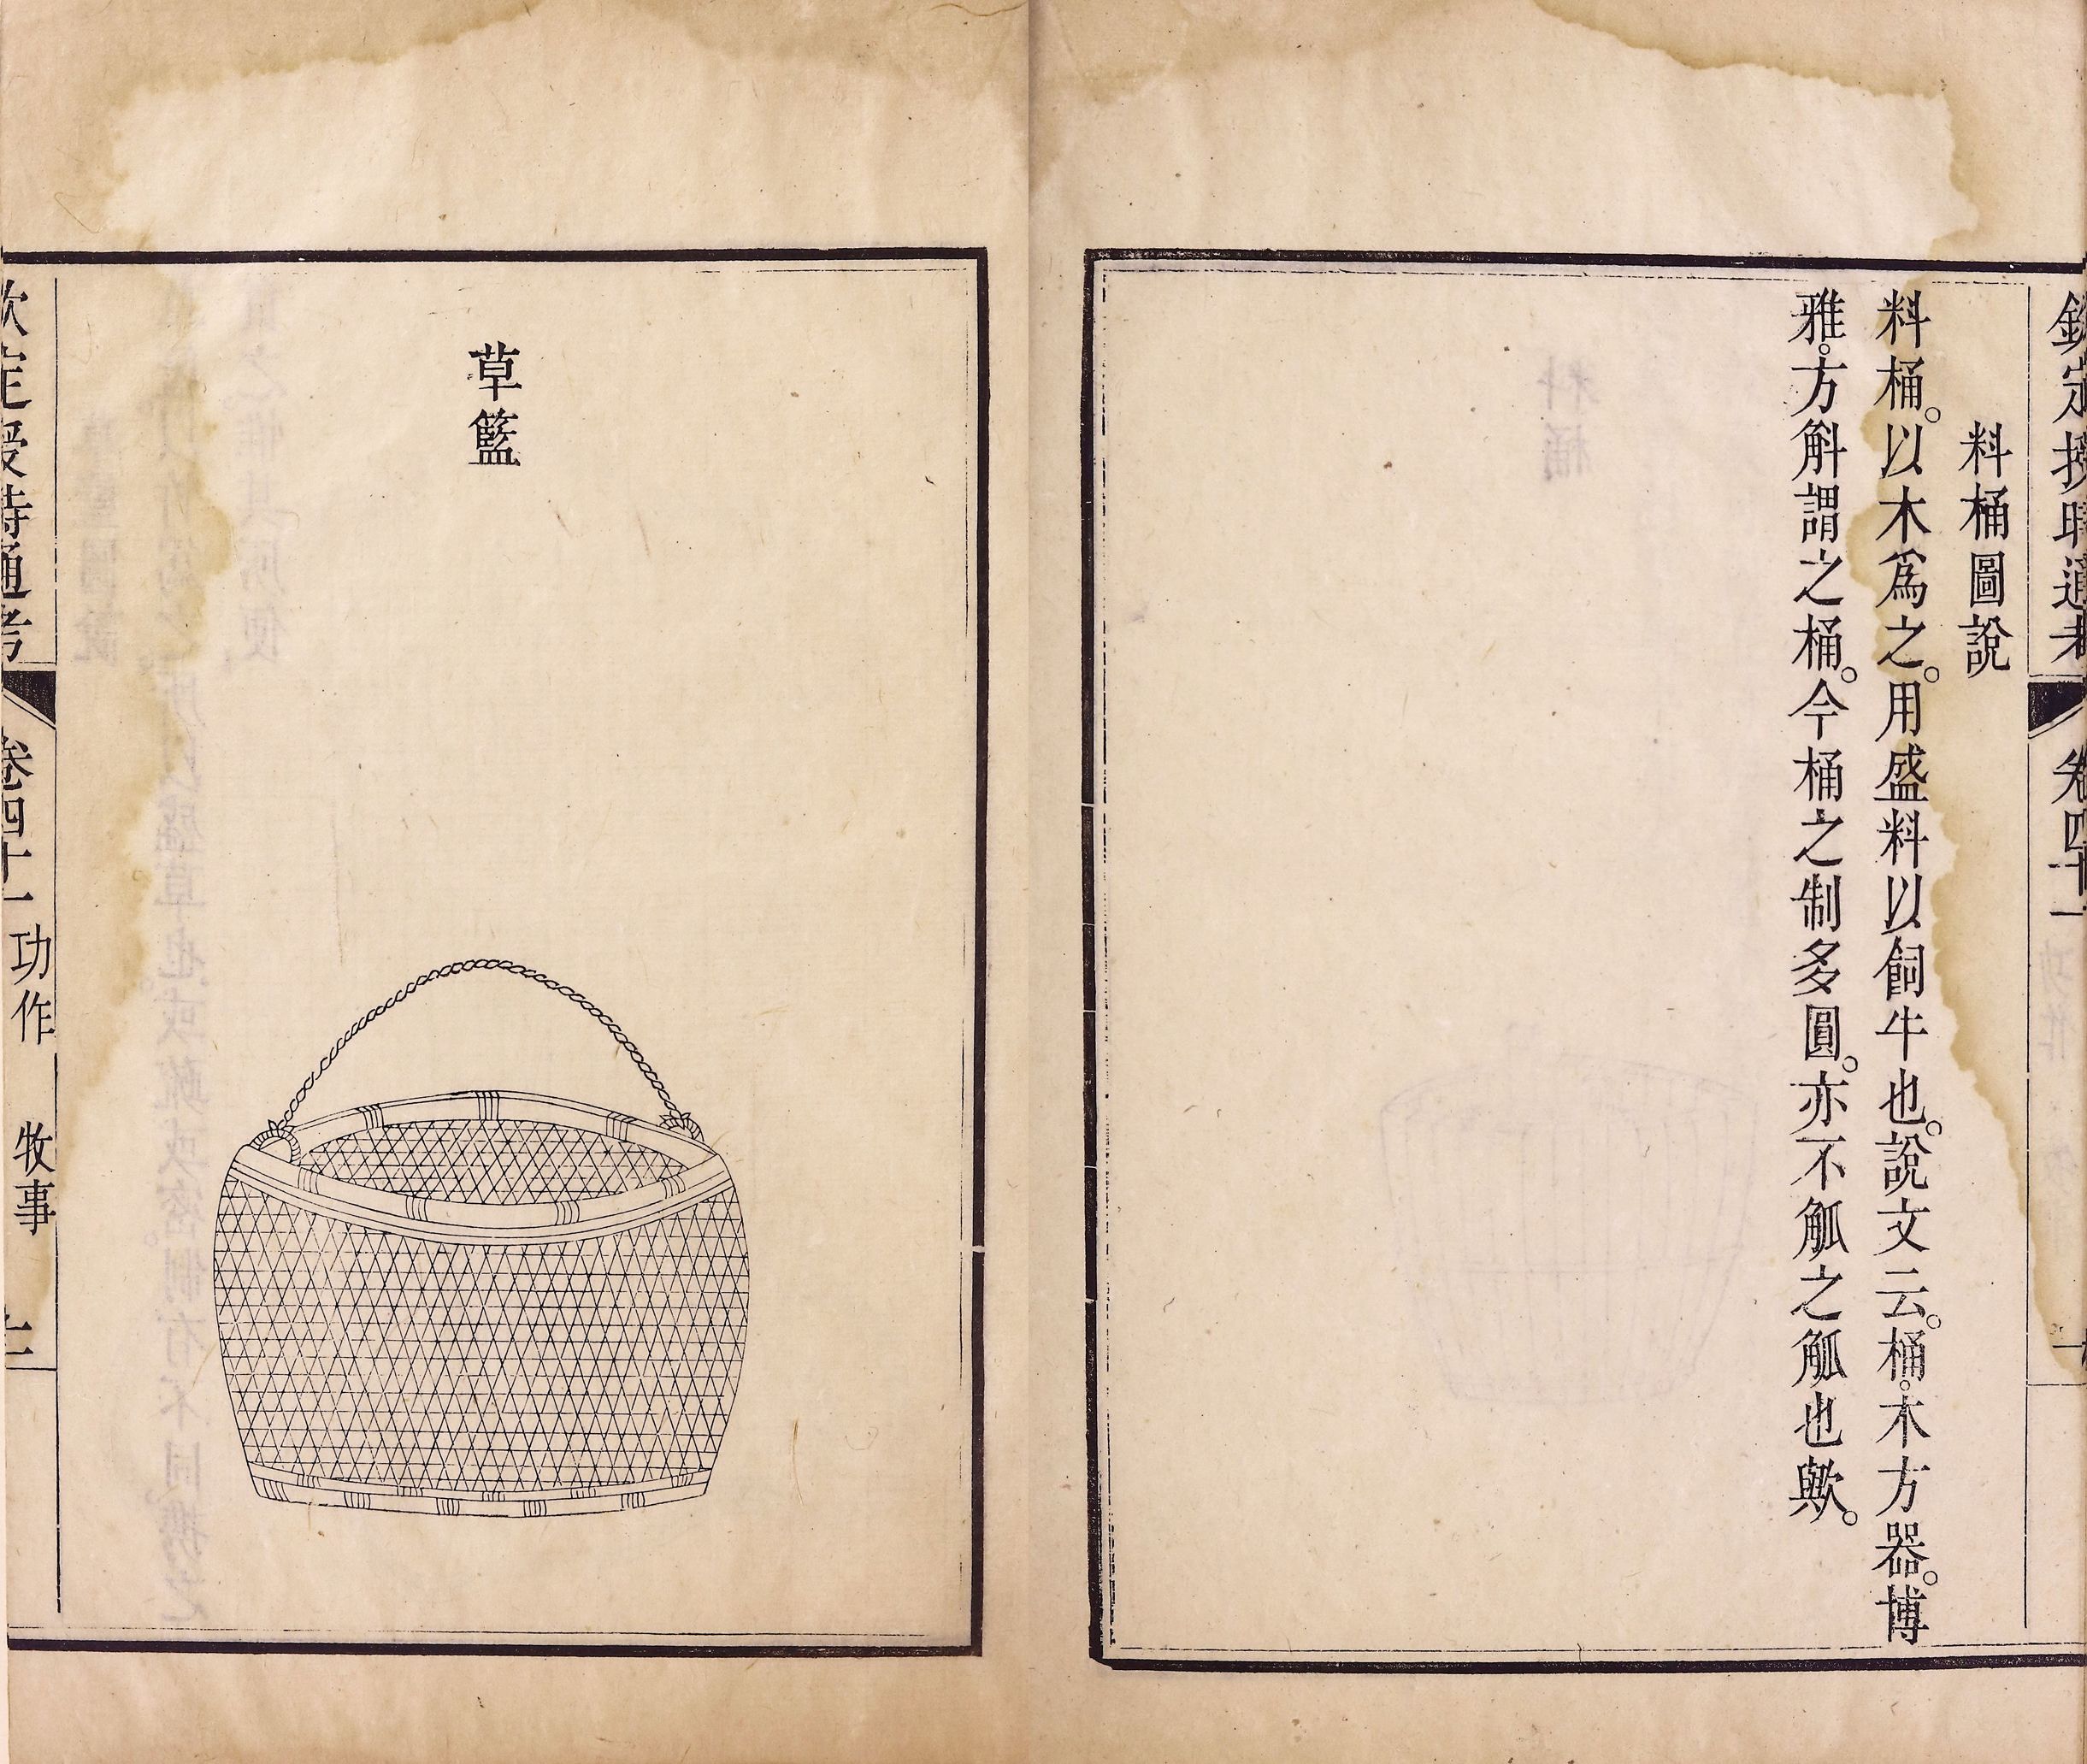 欽定授時通考
卷四十一
料桶圖說
料桶。以木爲之。用盛料以飼牛也。說文云。桶。木方器。博
雅。方斛謂之桶。今桶之制多圓。亦不觚之觚也歟。
草籃
欽定授時通考
卷四十一 功作 牧事 十二